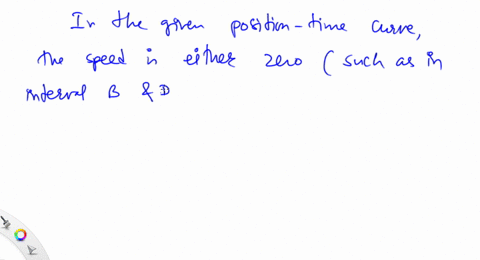 In the given position-time curve,
the speed is either zero (such as in
interval B & D